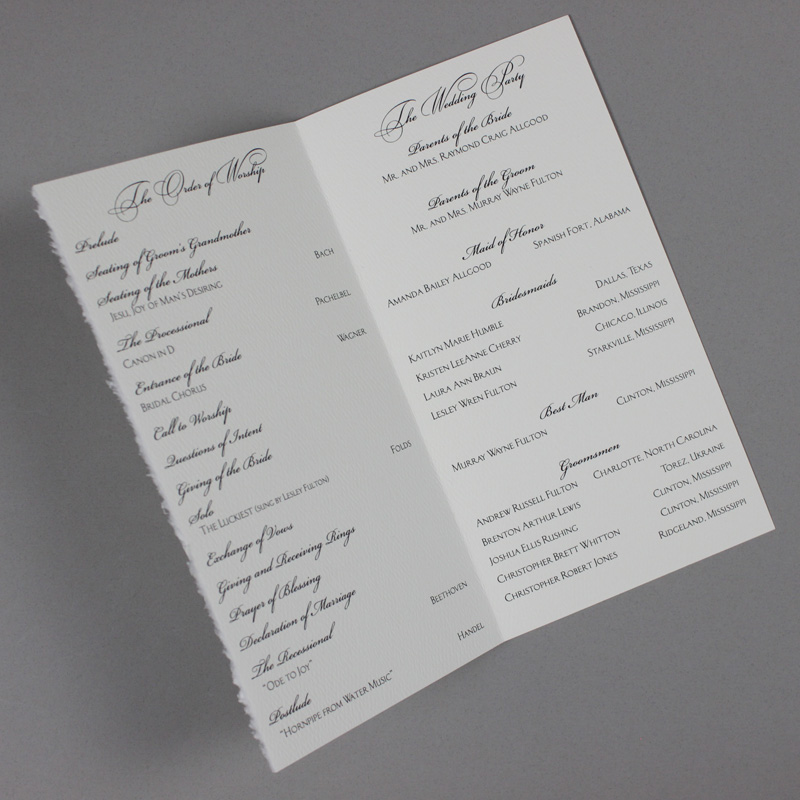 The Order of Worship
Prelude
Seating of Groom's Grandmother
Seating of the Mothers
Jesu, Joy of Man's Desiring Bach
The Processional
Canon in D Pachelbel
Entrance of the Bride
Bridal Chorus Wagner
Call to Worship
Questions of Intent
Giving of the Bride
Solo
The Luckiest (sung by Lesley Fulton) Folds
Exchange of Vows
Giving and Receiving Rings
Prayer of Blessing
Declaration of Marriage
The Recessional
"Ode to Joy" Beethoven
Postlude
"Hornpipe from Water Music" Handel
The Wedding Party
Parents of the Bride
Mr. and Mrs. Raymond Craig Allgood
Parents of the Groom
Mr. and Mrs. Murray Wayne Fulton
Maid of Honor
Amanda Bailey Allgood Spanish Fort, Alabama
Bridesmaids
Kaitlyn Marie Humble Dallas, Texas
Kristen LeeAnne Cherry Brandon, Mississippi
Laura Ann Braun Chicago, Illinois
Lesley Wren Fulton Starkville, Mississippi
Best Man
Murray Wayne Fulton Clinton, Mississippi
Groomsmen
Andrew Russell Fulton Charlotte, North Carolina
Brenton Arthur Lewis Torez, Ukraine
Joshua Ellis Rushing Clinton, Mississippi
Christopher Brett Whitton Clinton, Mississippi
Christopher Robert Jones Ridgeland, Mississippi